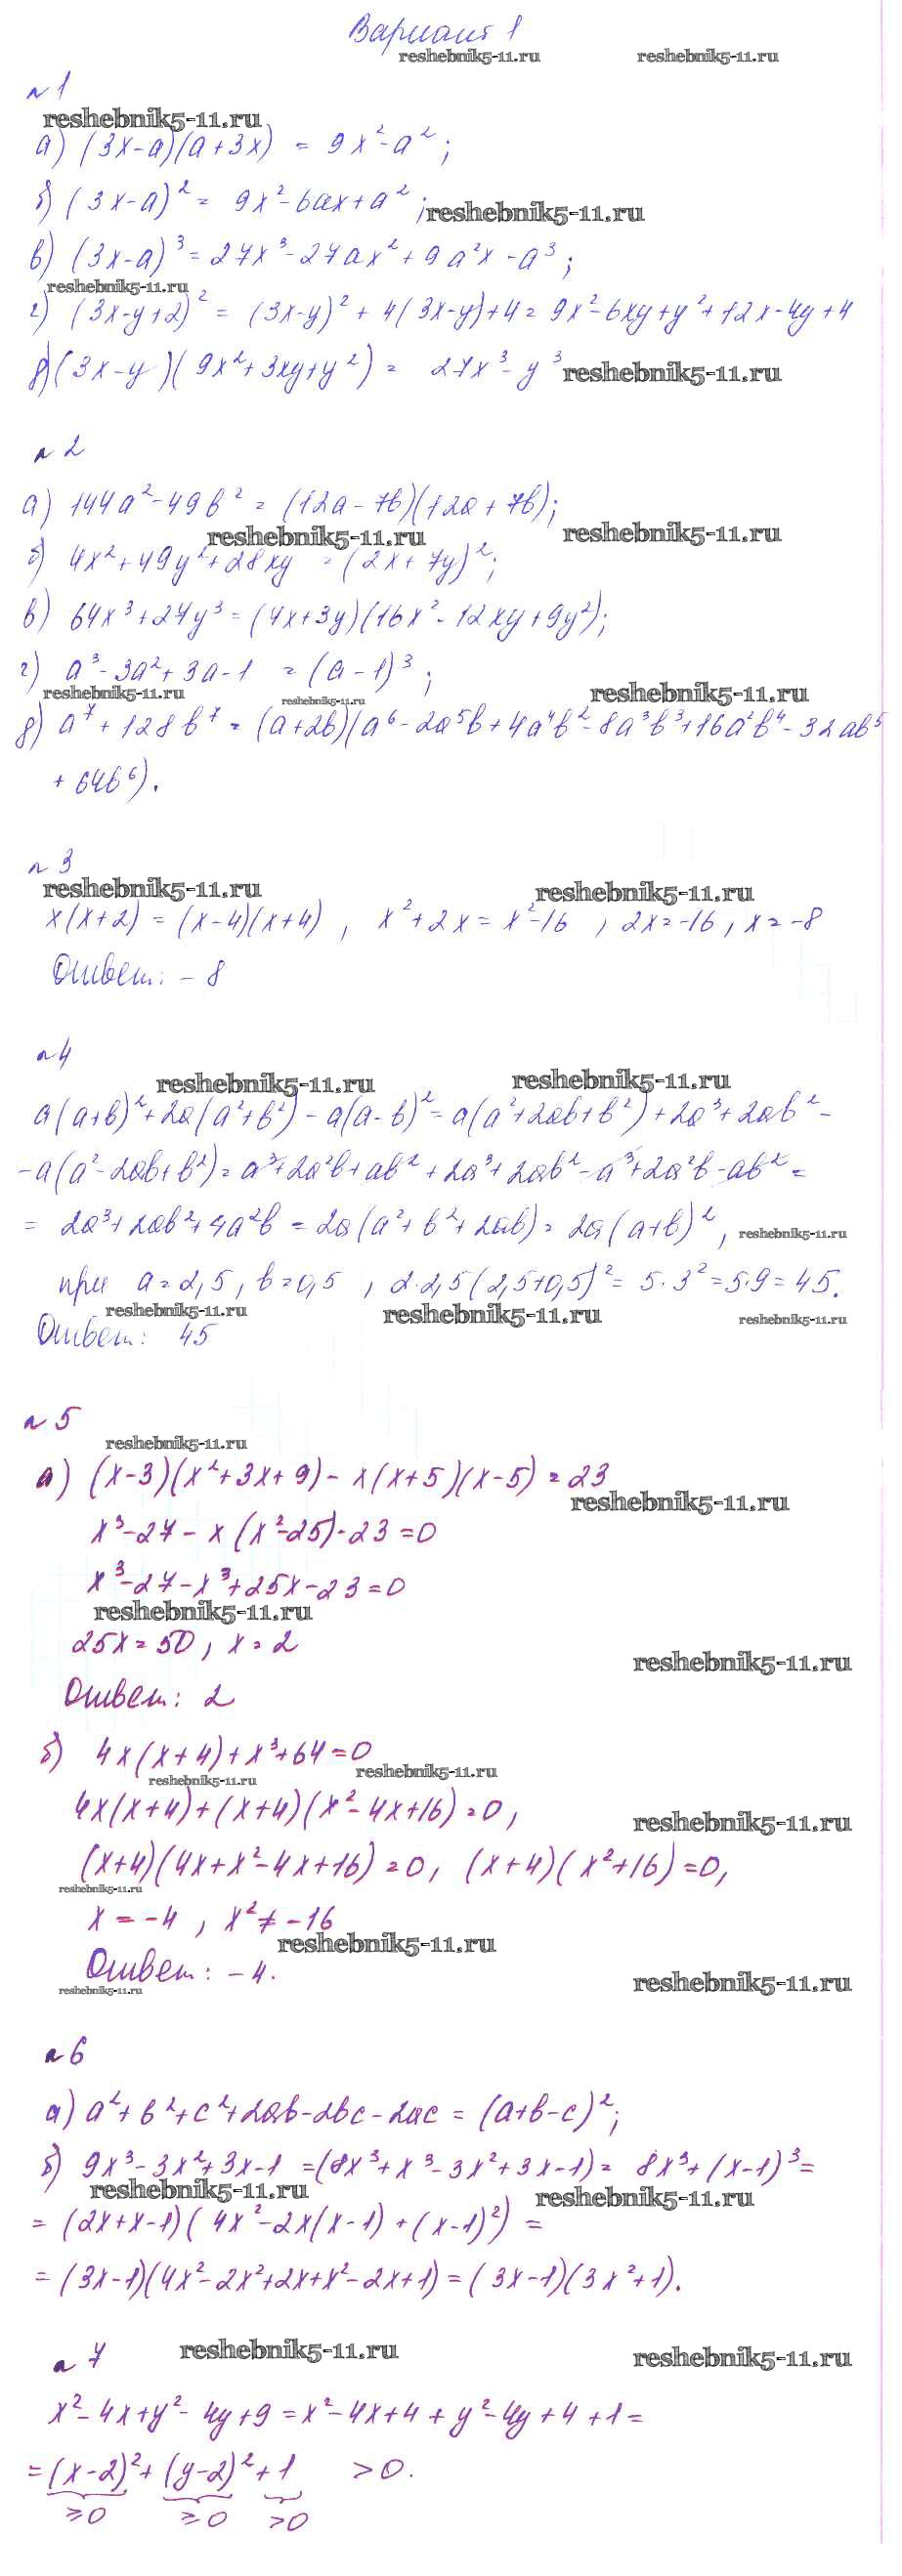 Вариант 1
reshebnik5-11.ru reshebnik5-11.ru
№1
reshebnik5-11.ru
а) (3x-a)(a+3x) = 9x²-a²;
б) (3x-a)² = 9x²-6ax+a²; reshebnik5-11.ru
в) (3x-a)³ = 27x³-27ax²+9a²x-a³;
reshebnik5-11.ru
г) (3x-y+2)² = (3x-y)²+4(3x-y)+4 = 9x²-6xy+y²+12x-4y+4
д) (3x-y)(9x²+3xy+y²) = 27x³-y³ reshebnik5-11.ru
№2
а) 144a²-49b² = (12a-7b)(12a+7b);
reshebnik5-11.ru reshebnik5-11.ru
б) 4x²+49y²+28xy = (2x+7y)²;
в) 64x³+27y³ = (4x+3y)(16x²-12xy+9y²);
г) a³-3a²+3a-1 = (a-1)³;
reshebnik5-11.ru reshebnik5-11.ru reshebnik5-11.ru
д) a⁷+128b⁷ = (a+2b)(a⁶-2a⁵b+4a⁴b²-8a³b³+16a²b⁴-32ab⁵
+64b⁶).
№3
reshebnik5-11.ru reshebnik5-11.ru
x(x+2) = (x-4)(x+4), x²+2x = x²-16, 2x=-16, x=-8
Ответ: -8
№4
reshebnik5-11.ru reshebnik5-11.ru
a(a+b)²+2a(a²+b²)-a(a-b)² = a(a²+2ab+b²)+2a³+2ab²-
-a(a²-2ab+b²) = a³+2a²b+ab²+2a³+2ab²-a³+2a²b-ab² =
= 2a³+2ab²+4a²b = 2a(a²+b²+2ab) = 2a(a+b)², reshebnik5-11.ru
при a=2,5, b=0,5, 2·2,5(2,5+0,5)² = 5·3² = 5·9 = 45.
reshebnik5-11.ru reshebnik5-11.ru reshebnik5-11.ru
Ответ: 45
№5
reshebnik5-11.ru
а) (x-3)(x²+3x+9)-x(x+5)(x-5) = 23
reshebnik5-11.ru
x³-27-x(x²-25)-23=0
x³-27-x³+25x-23=0
reshebnik5-11.ru
25x=50, x=2
reshebnik5-11.ru
Ответ: 2
б) 4x(x+4)+x³+64=0
reshebnik5-11.ru reshebnik5-11.ru
4x(x+4)+(x+4)(x²-4x+16)=0,
reshebnik5-11.ru
(x+4)(4x+x²-4x+16)=0, (x+4)(x²+16)=0,
reshebnik5-11.ru
x=-4, x²≠-16
reshebnik5-11.ru
Ответ: -4.
reshebnik5-11.ru reshebnik5-11.ru
№6
а) a²+b²+c²+2ab-2bc-2ac = (a+b-c)²;
б) 9x³-3x²+3x-1 = (8x³+x³-3x²+3x-1) = 8x³+(x-1)³ =
reshebnik5-11.ru reshebnik5-11.ru
= (2x+x-1)(4x²-2x(x-1)+(x-1)²) =
= (3x-1)(4x²-2x²+2x+x²-2x+1) = (3x-1)(3x²+1).
№7 reshebnik5-11.ru reshebnik5-11.ru
x²-4x+y²-4y+9 = x²-4x+4+y²-4y+4+1 =
= (x-2)²+(y-2)²+1 >0.
≥0 ≥0 >0